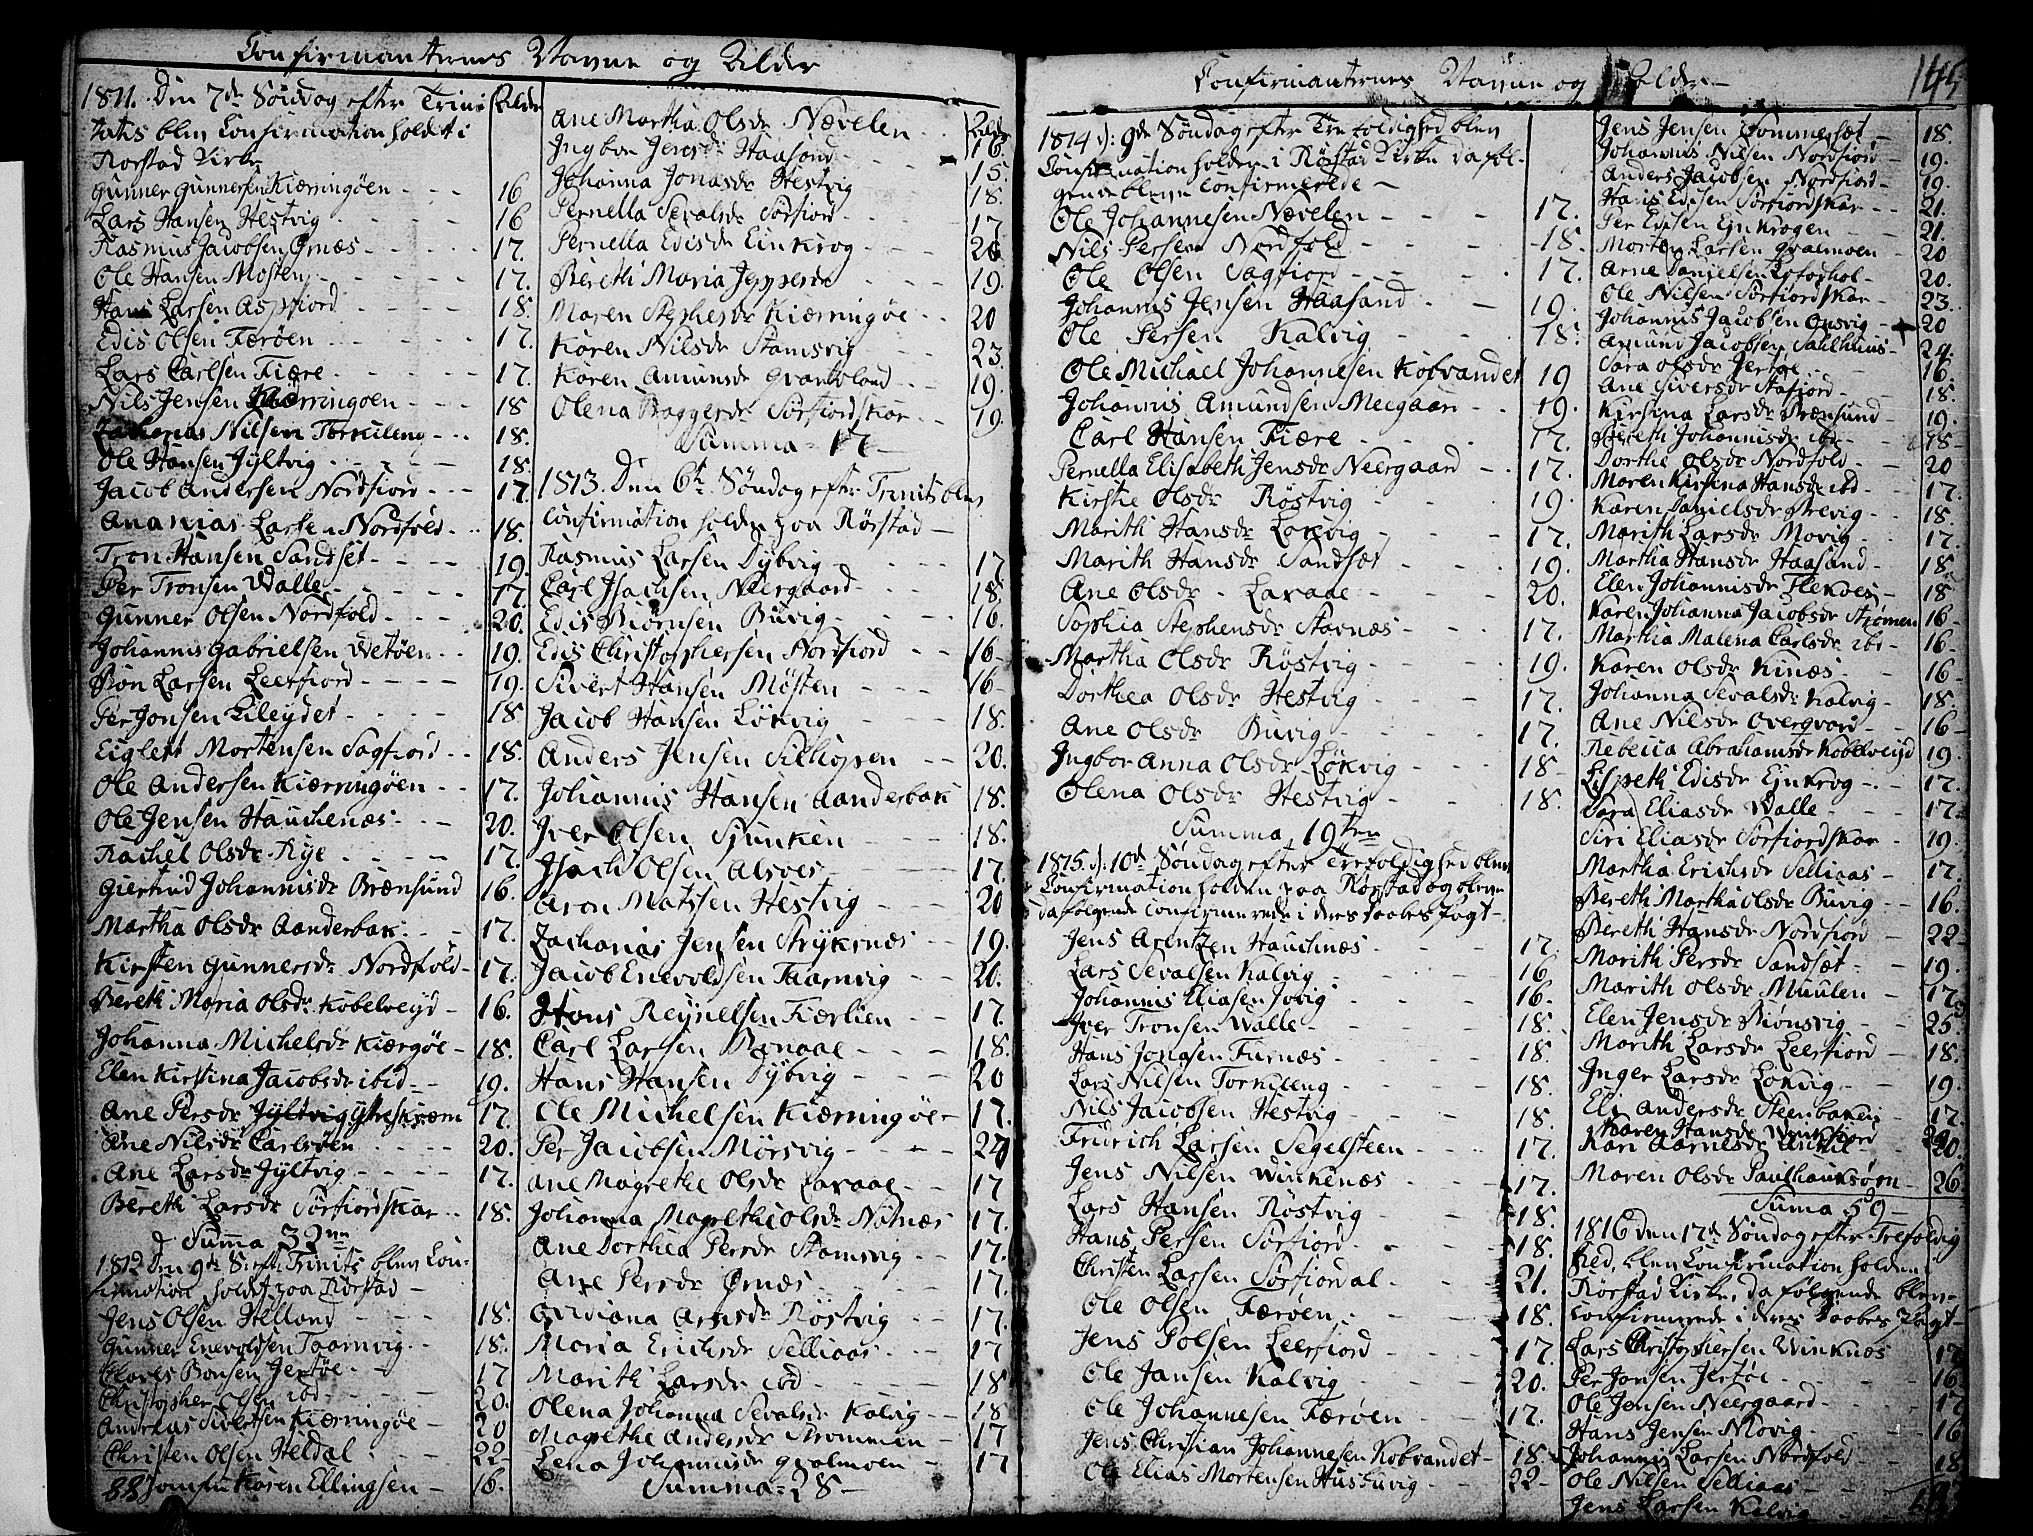 Confirmanternes Navne og Alder
1811. Den 7de Søndag efter Trini
tatis blev Confirmation holdet i
Rorstad Kirke
Alder
Gunner Gunnersen Kierringøen 16
Lars Hansen Hestvig 16
Rasmus Jacobsen Ørnæs 17.
Ole Hansen Mosten 17.
Hans Larsen Aspfiord 18.
Edis Olsen Færøen 17.
Lars Carlsen Fiære 17.
Nils Jensen Kierringøen 18
Zacharias Nilsen Torkileng 18.
Ole Hansen Jyltvig 18.
Jacob Andersen Nordfiord 17.
Ananias Larsen Nordfold 18.
Tron Hansen Sandset 19.
Per Tronsen Walle 17.
Gunner Olsen Nordfold 20.
Johannis Gabrielsen Wetøen 19.
Bon Larsen Leerfiord 19.
Per Jonsen Lileydet 18.
Eiglett Mortensen Sagfiord 18.
Ole Andersen Kierringøen 17.
Ole Jensen Hauchenæs 20.
Rachel Olsdr Rye 17.
Giertrud Johannisdr Brænsund 16.
Martha Olsdr Aanderbak 17.
Kirsten Gunnersdr Nordfold 17.
Bereth Maria Olsdr Kobelveyd 16.
Johanna Michelsdr Kiergøe 18.
Elen Kirstina Jacobsdr ibid 19.
Ane Persdr Jyltvig ytreskræm 17.
Ane Nilsdr Carlsøen 20.
Ane Larsdr Jyltvig 17.
Bereth Larsdr Sørfiordskar 18.
Summa 32
1812 Den 9de S. eft. Trinits blev Con-
firmation holdt paa Rørstad
Jens Olsen Helland 18.
Gunner Enevoldsen Taarnvig 18.
Bonsen Jertøe 17
Christopher Olsen ibd 20.
Andreas Sivertsen Kierringøe 20
Christen Olsen Heldal 22
Jomfru Karen Ellingsen 16.
Ane Martha Olsdr Nævelen 16
Ingbor Jensdr Haasand 15.
Johanna Jonasdr Hestvig 18.
Pernella Sevalsdr Sørfiord 17
Pernella Edisdr Einkrog 20
Bereth Maria Jeppesdr 19.
Maren Stephesdr Kierringøe 20
Karen Nilsdr Stamsvig 23.
Karen Amunsdr Qvantoland 19.
Olena Baggesdr Sørfiordskar 19.
Summa 17
1813. Den 6te Søndag eft. Trinits blev
Confirmation holden paa Rørstad
Rasmus Larsen Dybvig 17
Carl Isachsen Neergaard 18
Edis Biørnsen Buvig 16.
Edis Christophersen Nordfiord 16
Sivert Hansen Møsten 16
Jacob Hansen Løkvig 18.
Anders Jensen Silkopen 20.
Johannis Hansen Aanderbak 18.
Iver Olsen Sjunken 18.
Isach Olsen Alsoes 17.
Aron Matssen Hestvig 20
Zacharias Jensen Strykernæs 19.
Jacob Enevoldsen Taarnvig 20.
Hans Reynelsen Fierlien 17.
Carl Larsen Bonaae 18.
Hans Hansen Dybvig 20
Ole Michelsen Kierringøe 17.
Per Jacobsen Mørsvig 24
Ane Magrethe Olsdr Laxaae 17
Johanna Magrethe Olsdr Nøtnæs 17.
Ane Dorthea Persdr Stamsvig 17.
Ane Persdr Ørnæs 17.
Arnsdr Røstvig 17.
Maria Erichsdr Selliaas 17
Marith Larsdr ibd 18
Olena Johanna Sevalsdr Kalvig 18
Magrethe Andersdr Strømmen 17
Lena Johannisdr Qvalmoen 17
Summa 28
Confirmanternes Navne og Alder
145
1814 d: 9de Søndag efter Trefoldighed blev
Confirmation holden i Rørstad Kirke da føl-
gende bleve Confirmerede
Ole Johannesen Nævelen 17.
Nils Persen Nordfold 18.
Ole Olsen Sagfiord 17.
Johannis Jensen Haasand 19.
Ole Persen Kalvig 18.
Ole Michael Johannesen Kobvandet 19
Johannis Amundsen Meegaar 19.
Carl Hansen Fiære 17.
Pernella Elisabeth Jensdr Neergaard 17.
Kirstie Olsdr Røstvig 19.
Marith Hansdr Løkvig 17.
Marith Hansdr Sandsæt 19.
Ane Olsdr Laxaae 20.
Sophia Stephensdr Starnæs 17.
Martha Olsdr Røstvig 19.
Dorthea Olsdr Hestvig 17.
Ane Olsdr Buvig 17.
Ingbor Anna Olsdr Løkvig 18
Olena Olsdr Hestvig 18.
Summa 19ten
1815. d: 10de Søndag efter Trefoldighed blev
Confirmation holden paa Rørstad og bleve
da følgende Confirmerede i deres Daabes Pagt
Jens Arentzen Hauchnæs 17.
Lars Sevalsen Kalvig 16
Johannis Eliasen Jovig 16.
Iver Tronsen Walle 18.
Hans Jonasen Furnæs 18.
Lars Nilsen Torkileng 18.
Nils Jacobsen Hestvig 18.
Fridrich Larsen Segelsteen 17.
Jens Nilsen Winkenæs 17.
Lars Hansen Røstvig 18.
Hans Persen Sørfiord 18.
Christen Larsen Sørfiordal 21.
Ole Olsen Færøen 18.
Jens Polsen Leerfiord 17.
Ole Jansen Kalvig 20.
Ole Johannesen Færøen 17.
Jens Christian Johannesen Kobvandet 18.
Ole Elias Mortensen Husbuvig 22
Jens Jensen Sommersæt 18.
Johannis Nilsen Nordfiord 19.
Anders Jacobsen Nordfiord 19.
Hans Edisen Sørfiordskar 21.
Per Edisen Einkrogen 21.
Morten Larsen Qvalmoen 20
Arne Danielsen 20.
Ole Nilsen Sørfiordskar 23.
Johannis Jacobsen 20
Amund Jacobsen 24.
Sara Olsdr Jertøe 16
Ane Siversdr Stafiord 18.
Kirstina Larsdr Brænsund 19.
Bereth Johannisdr ibd 18
Dorthe Olsdr Nordfold 20
Maren Kirstina Hansdr ibd 17.
Karen Danielsdr Strevig 18.
Marith Larsdr Movig 17.
Martha Hansdr Haasand 18.
Elen Johannisdr Flekoes 18
Karen Johanna Jacobsdr Strømen 16
Martha Malena Carlsdr ibd 16
Karen Olsdr Kinæs 16
Johanna Sevalsdr Kalvig 18.
Ane Nilsdr Overgvord 16
Rebecca Abrahamsdr Kobbelveyd 19.
Lispeth Edisdr Einkrog 17.
Sara Eliasdr Walle 17
Siri Eliasdr Sørfiordskar 19.
Martha Erichsdr Selliaas 17.
Bereth Martha Olsdr Buvig 16.
Bereth Hansdr Nordfiord 22
Marith Persdr Sandsæt 19.
Marith Olsdr Muulen 17.
Elen Jensdr Biønsvig 25
Marith Larsdr Leerfiord 18.
Inger Larsdr Løkvig 19.
Eli Andersdr Steenbaken 17.
Karen Hansdr
Kari Aarnesdr 20.
Maren Olsdr 26
Suma 59
1816 den 17de Søndag efter Trefoldig
hed, blev Confirmation holden
Rørstad Kirke, da følgende bleve
Confirmerede i deres Daabes Pagt
Lars Christophersen Winknæs 17
Per Jonsen Jertøe 16.
Ole Jensen Neergaard 17
Hans Jensen Movig 16
Johannis Larsen Nordfold 18
Ole Nilsen Selliaas
Jens Larsen Kalvig